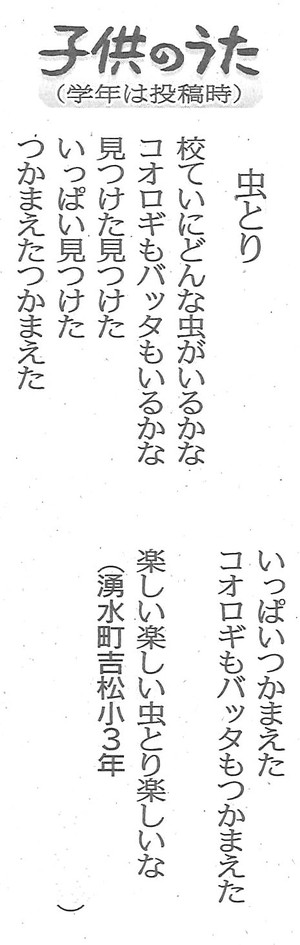 子供のうた
（学年は投稿時）
虫とり
校ていにどんな虫がいるかな
コオロギもバッタもいるかな
見つけた見つけた
いっぱい見つけた
つかまえたつかまえた
いっぱいつかまえた
コオロギもバッタもつかまえた
楽しい楽しい虫とり楽しいな
（湧水町吉松小３年　　　　）